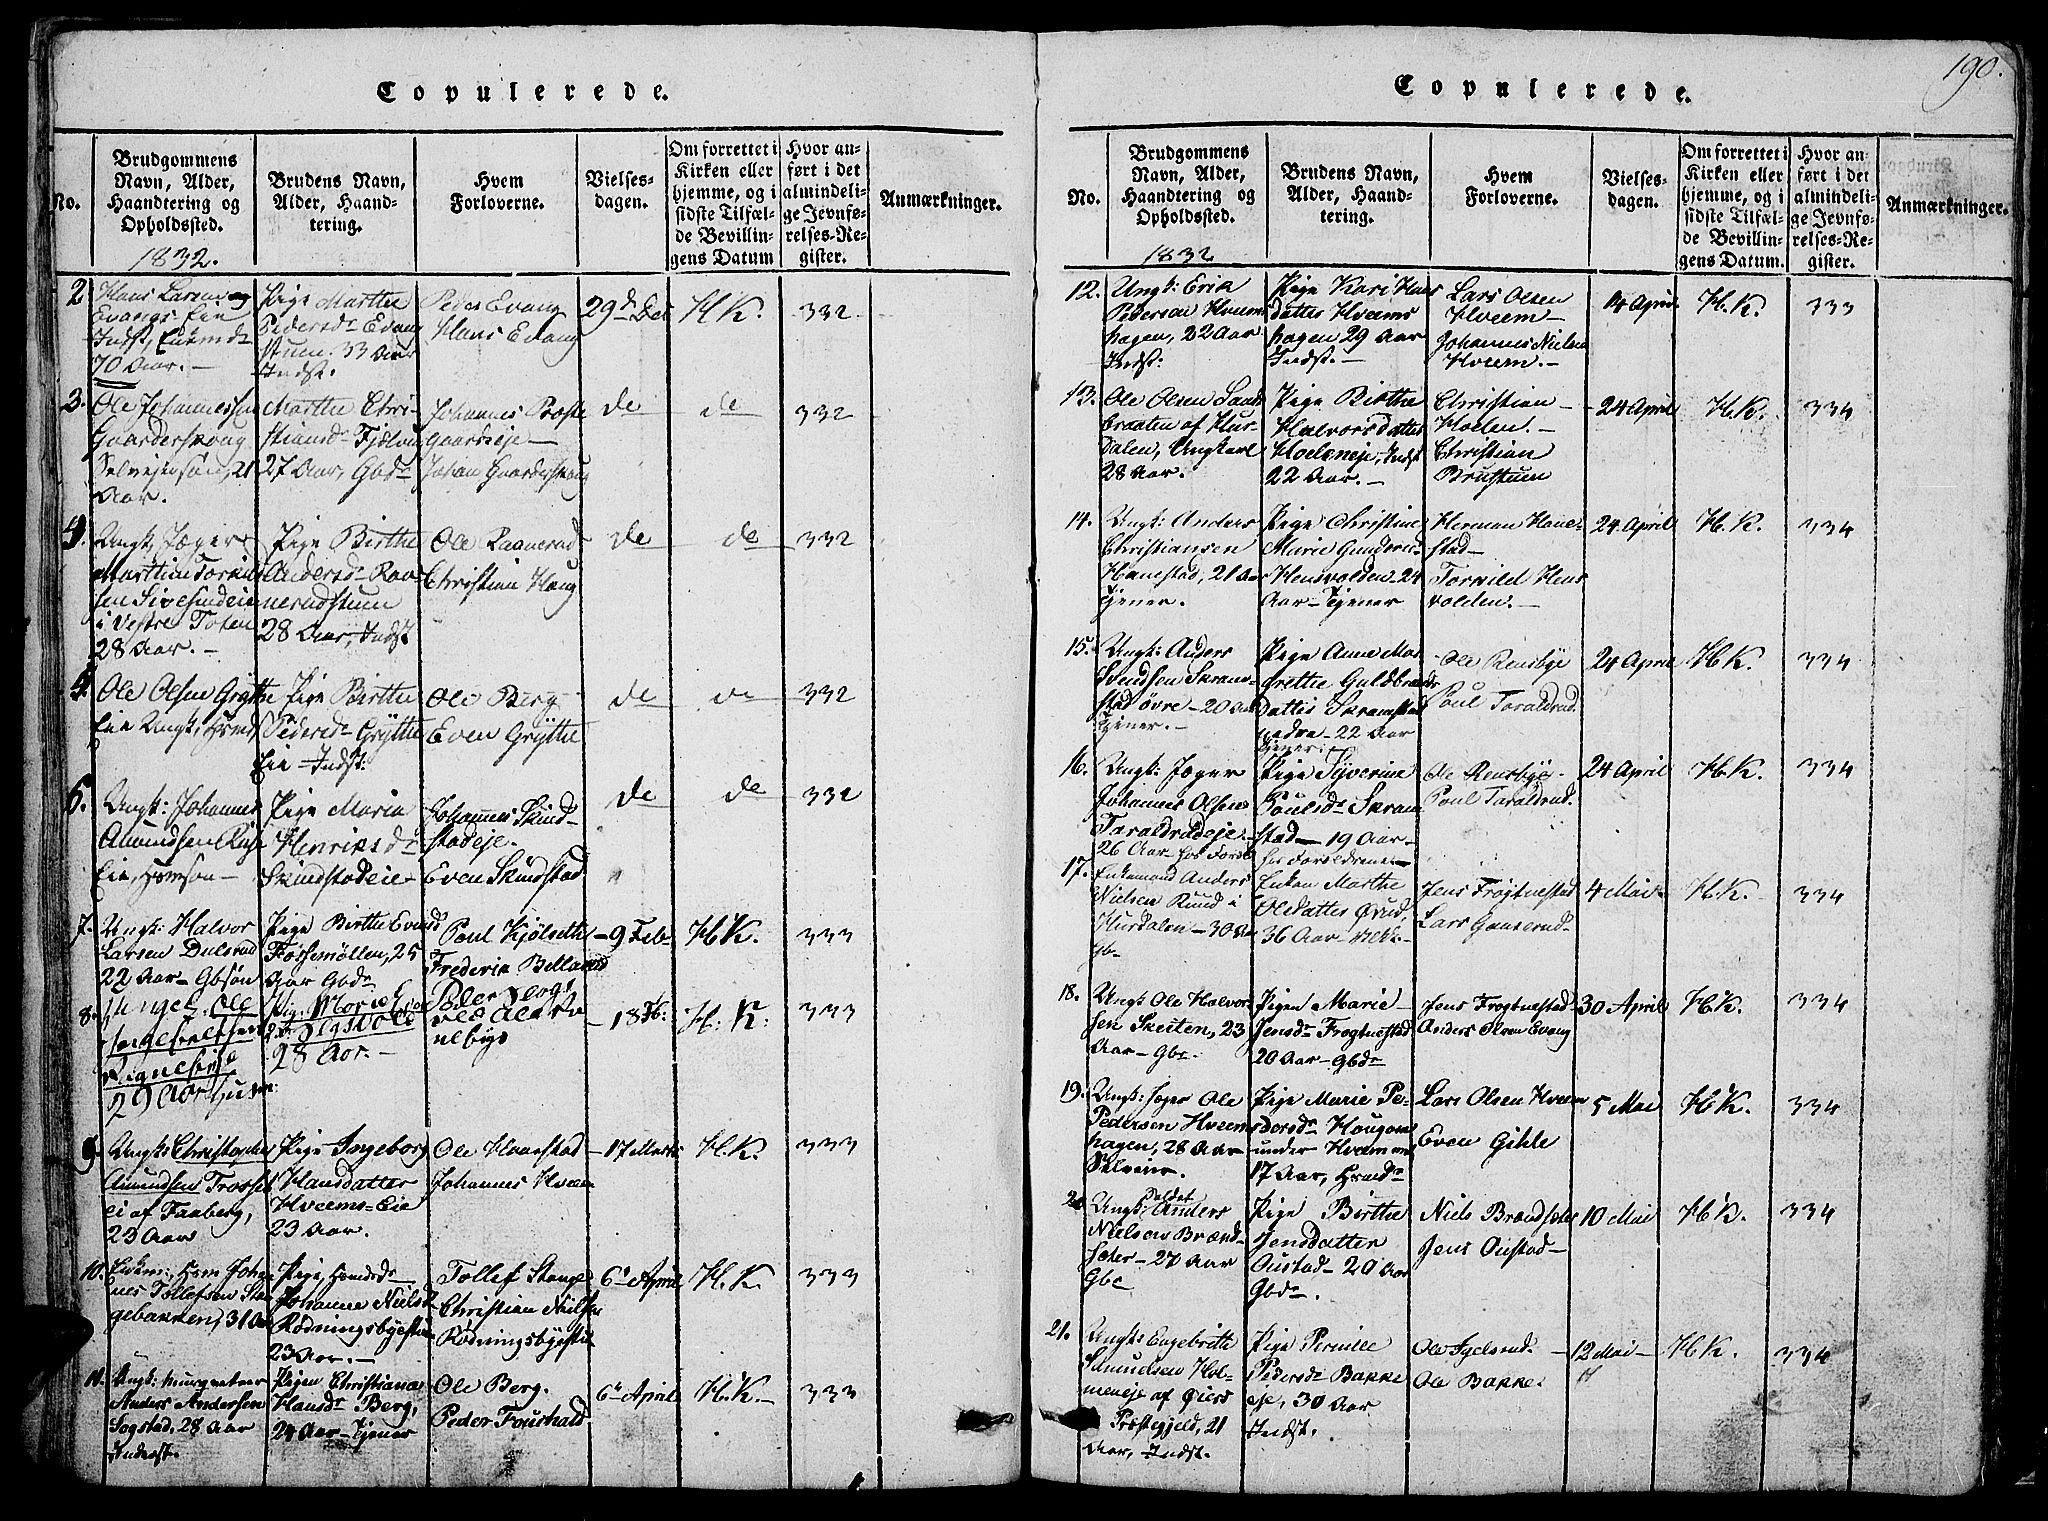 190.
Copulerede.
No.
Brudgommens
Navn, Alder,
Haandtering og
Opholdssted.
1832.
Brudens Navn,
Alder, Haand-
tering.
Hvem
Forloverne.
Vielses-
dagen.
Om forrettet i
Kirken eller
hjemme, og i
sidste Tilfæl-
de Bevillin-
gens Datum
Hvor an-
ført i det
almindeli-
ge Jevnfø-
relses-Re-
gister.
Anmærkninger.
2
Hans Larsen
Evangs Eie
Indst, Enkemd
70 Aar. –
Pige Marthe
Pedersdr Evang
stuen. 33 Aar
Indst.
Peder Evang
Hans Evang
29d Dec
H.K.
332
3.
Ole Johannessen
Gaarderhoug
21
Aar.
Marthe Chri-
stiansdr
27 Aar, Gbdr
Johannes Præste
gaardseje –
Johan Gaarderhoug
de
de
332
4.
Ungk. Jæger
Marthin
i Vestre Toten
28 Aar. –
Pige Birthe
Andersdr
28 Aar, Indst
Ole
Christian Houg
de
de
332
Ole Olsen Grÿtte
Eie Ungk.
Pige Birthe
Pedersdr Grÿtte
Eie – Indst:
Ole Berg
Even Grÿtte
de
de
332
Ungk: Johannes
Amundsen
Eie,
Pige Maria
Henriksdr
Skindstadeie –
Johannes Skind-
stadeje.
Even Skindstad
de
de
332
7.
Ungk: Halvor
Larsen
22 Aar – Gbsøn
Pige Birthe
Fossemøllen, 25
Aar Gbdr
Poul Kjölseth
Frederik
– 9 Feb
H.K.
333
8.
Ole
29 Aar
28 Aar. –
Peder
– 18 Fb.
H: K:
333
9
Ungk: Christopher
Amundsen
ei af Faaberg,
23 Aar
Pige Ingeborg
Hansdatter
Hveems-Eie
23 Aar.
Ole
Johannes Hveem
– 17 Marts
H.K.
333
10.
Enkem: Hsm Johan
nes Tollefsen
gebakken, 31
Pige, Hsmds
Johanne Nielsd
Rödningsbyestu
23 Aar. –
Tollef Stange
Christian Nielsen
Rödningsbyestu
6' April
H.K.
333
11.
Ungk:
Anders Andersen
Sogstad, 28 Aar
Inderst.
Pigen Christiana
Hansdr Berg,
24 Aar – Tjener
Ole Berg.
Peder
6' April
H.K. –
333
Copulerede.
No.
Brudgommens
Navn, Alder,
Haandtering og
Opholdssted.
1832
Brudens Navn,
Alder, Haand-
tering.
Hvem
Forloverne.
Vielses-
dagen.
Om forrettet i
Kirken eller
hjemme, og i
sidste Tilfæl-
de Bevillin-
gens Datum.
Hvor an-
ført i det
almindeli-
ge Jevnfø-
relses-Re-
gister.
Anmærkninger.
12.
Ungk: Erik
Pedersen Hveem
hagen, 22 Aar
Indst:
Pige Kari Hans
datter Hveems
hagen 29 Aar
Indst. –
Lars Olsen
Hveem –
Johannes Nielsen
Hveem. –
14 April
H.K.
333
13.
Ole Olsen Sand
braaten af Hur
dalen, Ungkarl
28 Aar.
Pige Birthe
Halvorsdatter
Hoelseneje, Indst
22 Aar. –
Christian
Hoelen. –
Christian
Brustuen
– 24 April
H.K.
334
14.
Ungk: Anders
Christiansen
Hanestad, 21 Aar
Tjener.
Pige Christine
Marie Gundersd
Hensvolden – 24
Aar – Tjener
Herman Hane-
stad –
Torvild Hens
volden. –
24 April
H.K.
334
15.
Ungk: Anders
Svendsen Skram-
stad övre – 20 Aar
Tjener. –
Pige Anne Mar
grethe Guldbrands
datter Skramstad
nedre – 22 Aar
Tjener. –
Ole Rensbye
Poul Taraldrud
24 April
H.K.
334
16.
Ungk: Jæger
Johannes Olsen
Taraldrudeje –
26 Aar – hos Foræl
Pige Syverine
Poulsdr Skram
stad – 19 Aar –
hos Forældrene –
Ole Rensbye –
Poul Taraldrud.
24 April
H.K.
334
17.
Enkemand Anders
Nielsen Ruud i
Hurdalen – 30 Aar
Gb –
Enken Marthe
Olsdatter
36 Aar –
Jens Frogtnestad
Lars
4 Mai
H.K.
334
18.
Ungk Ole Halvor
sen Skesten, 23
Aar – Gbr.
Pigen Marie
Jensdr Frogtnestad
20 Aar – Gbdr
Jens Frogtnestad
Anders Olsen Evang
30 April
H.K.
334
19.
Ungk: Jæger Ole
Pedersen Hveems
hagen, 28 Aar
Selveier.
Pige Marie Pe-
dersdr Hougom
under Hveem
17 Aar, Hsmdr
Lars Olsen Hveem
Even Gihle
5 Mai
H.K.
334
20
Soldat
Ungk: Anders
Nielsen Brænd-
sæter – 27 Aar
Gbr
Pige Birthe
Jensdatter
Oustad – 20 Aar
Gbdr.
Niels Brændsæter
Jens Oustad –
10 Mai
H.K.
334
21.
Ungk: Engebreth
Samuelsen Hol-
meneje af
Præstegjeld, 21
Aar, Indst.
Pige Pernille
Pedersdr Bakke
eje, 30 Aar
Indst.
Ole
Ole Bakke.
– 12 Mai –
H.K.
334